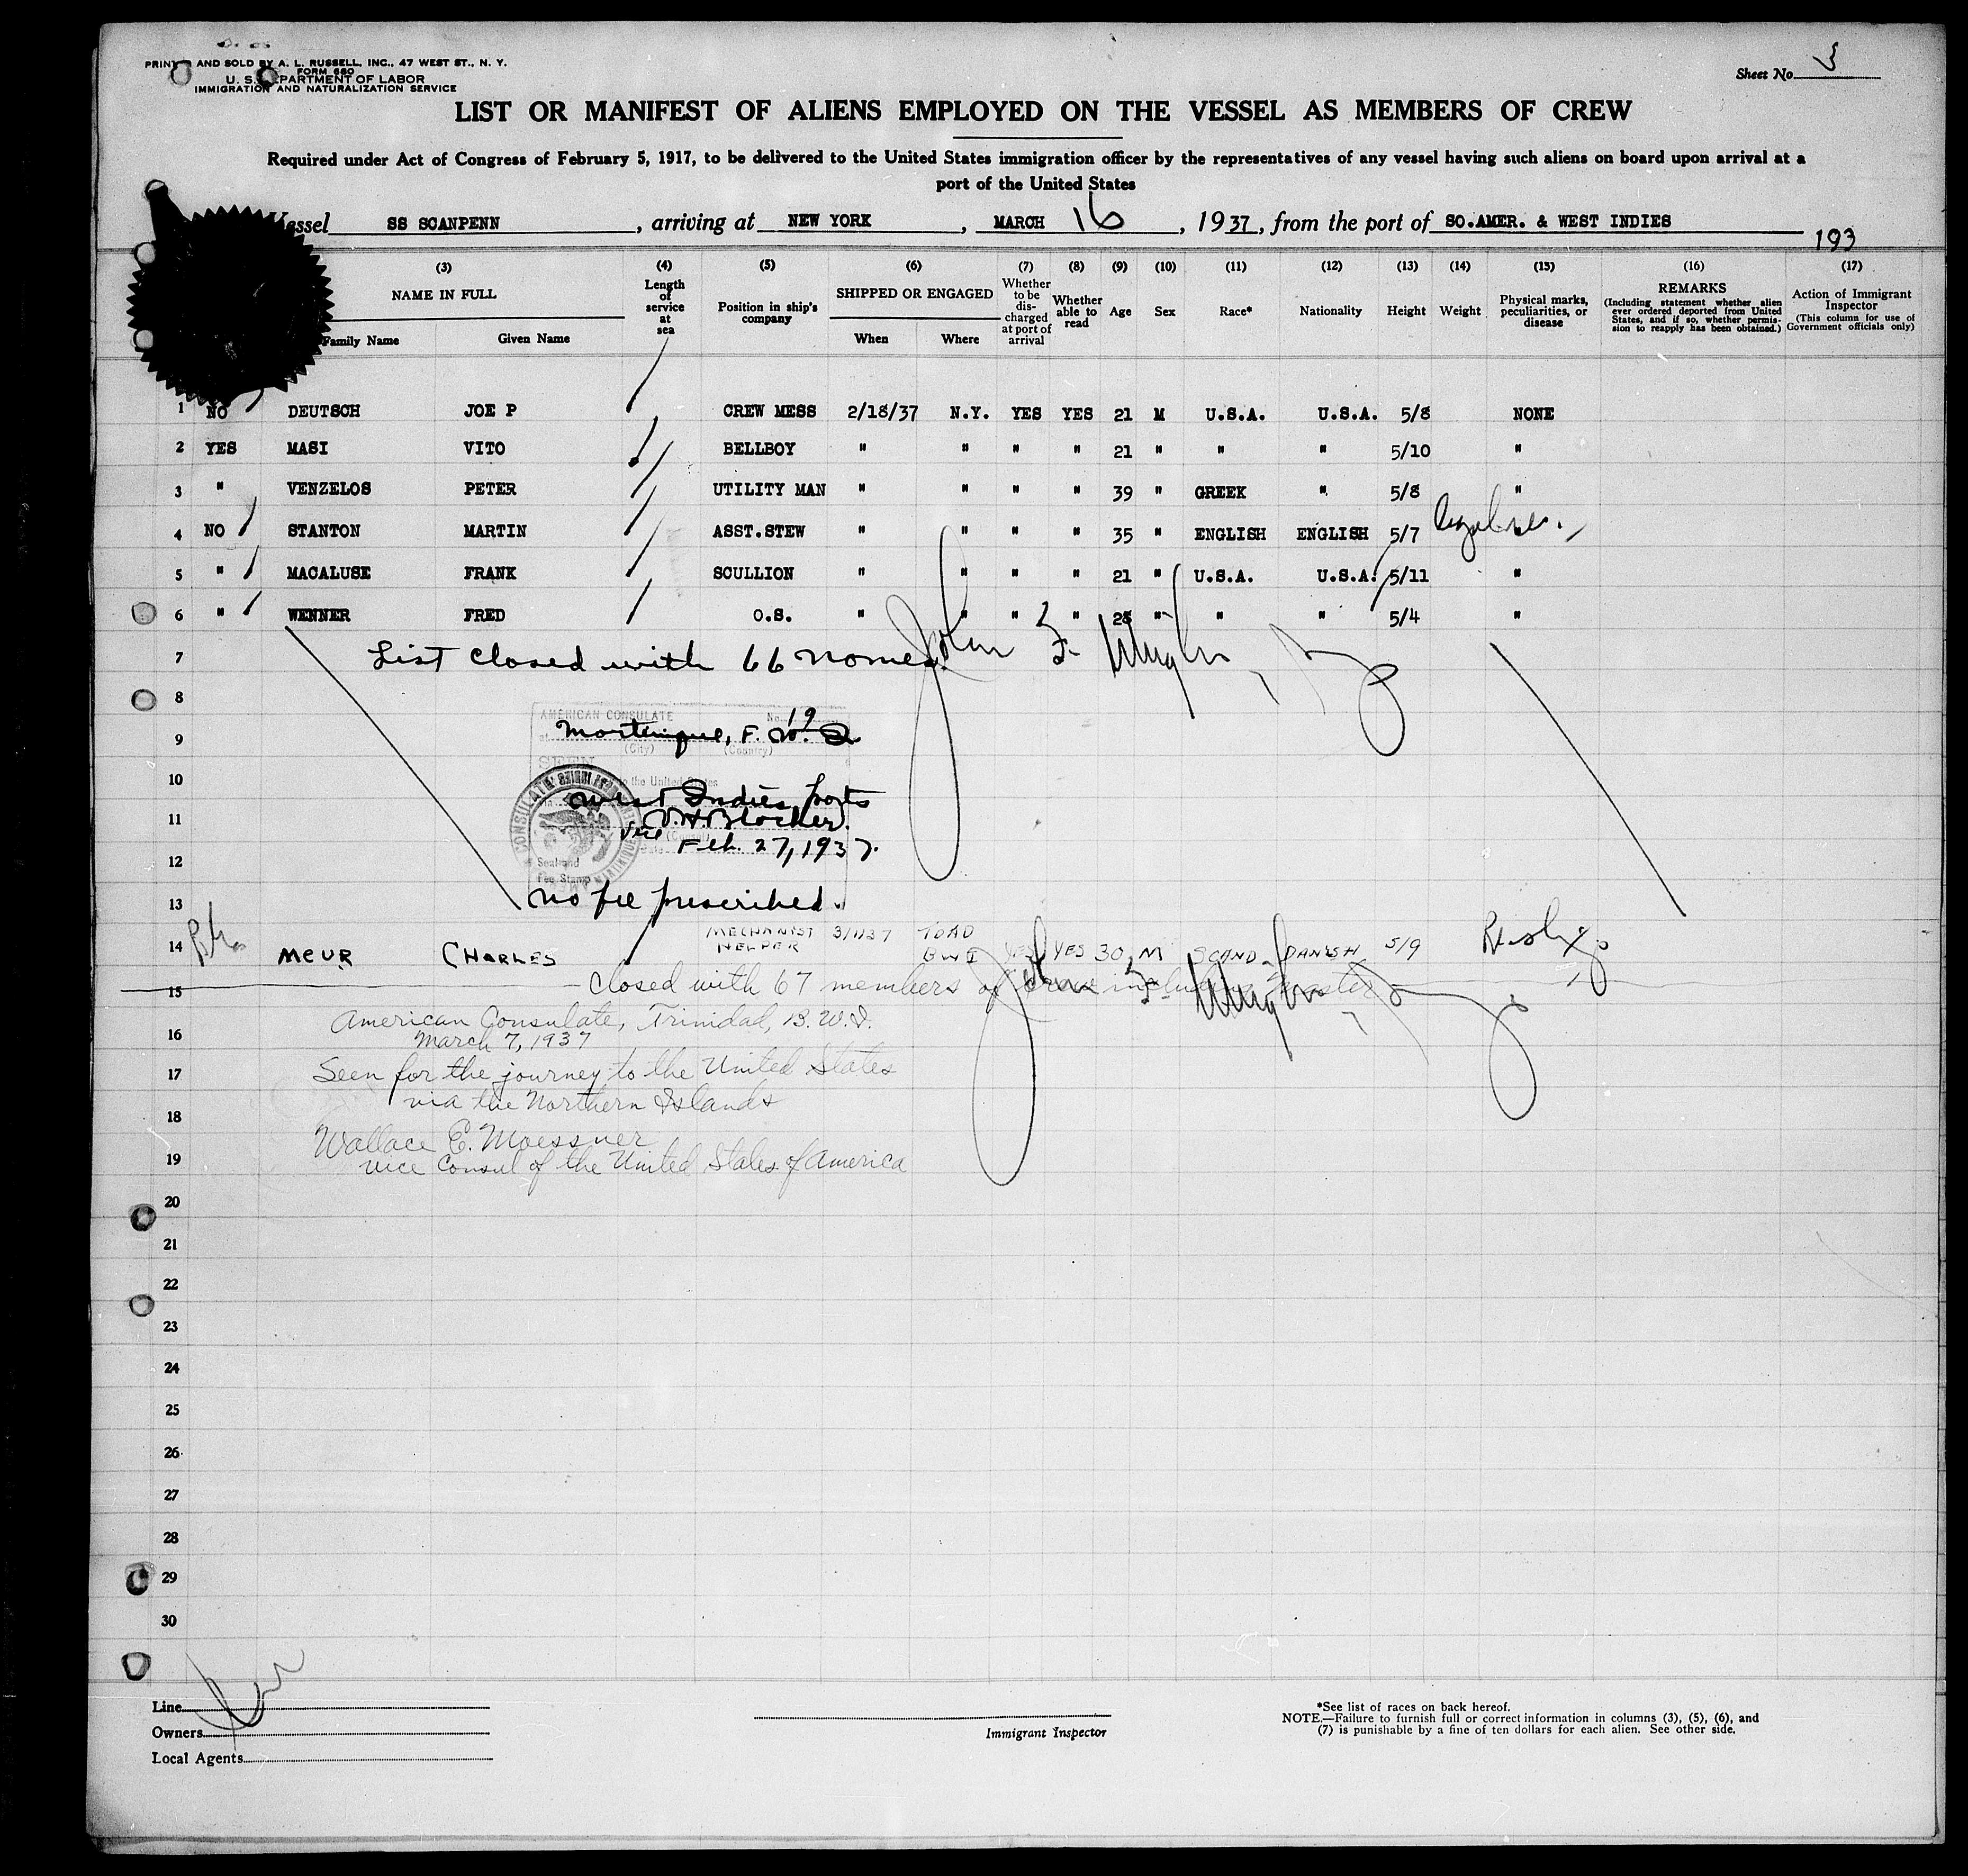 PRINTED AND SOLD BY A. L. RUSSELL, INC., 47 WEST ST., N. Y.
FORM 680
U. S. DEPARTMENT OF LABOR
IMMIGRATION AND NATURALIZATION SERVICE
Sheet No. 3
LIST OR MANIFEST OF ALIENS EMPLOYED ON THE VESSEL AS MEMBERS OF CREW
Required under Act of Congress of February 5, 1917, to be delivered to the United States immigration officer by the representatives of any vessel having such aliens on board upon arrival at a
port of the United States
Vessel SS SCANPENN, arriving at NEW YORK, MARCH 16, 1937, from the port of SO.AMER. & WEST INDIES
193
(3) (4) (5) (6) (7) (8) (9) (10) (11) (12) (13) (14) (15) (16) (17)
NAME IN FULL Family Name Given Name
Length of service at sea
Position in ship's company
SHIPPED OR ENGAGED When Where
Whether to be discharged at port of arrival
Whether able to read
Age Sex Race* Nationality Height Weight
Physical marks, peculiarities, or disease
REMARKS
(Including statement whether alien ever ordered deported from United States, and if so, whether permission to reapply has been obtained.)
Action of Immigrant Inspector
(This column for use of Government officials only)
1 NO DEUTSCH JOE P CREW MESS 2/18/37 N.Y. YES YES 21 M U.S.A. U.S.A. 5/8 NONE
2 YES MASI VITO BELLBOY " " " " 21 " " " 5/10 "
3 " VENZELOS PETER UTILITY MAN " " " " 39 " GREEK " 5/8 "
4 NO STANTON MARTIN ASST.STEW " " " " 35 " ENGLISH ENGLISH 5/7
5 " MACALUSE FRANK SCULLION " " " " 21 " U.S.A. U.S.A. 5/11 "
6 " WENNER FRED O.S. " " " " " " " 5/4 "
7 List closed with 66 names. John F.
8
AMERICAN CONSULATE No. 19
9 Martinique, F. W. I.
(City) (Country)
SEEN
10 to the United States
West Indies ports
11 V.H. Blocker.
Vice (Consul)
Feb. 27, 1937.
12 Seal and
Fee Stamp
13 No fee prescribed.
14 MEUR CHARLES MECHANIST HELPER TDAD BWI YES YES 30 M SCAND. DANISH 5/9
15 Closed with 67 members of crew including Master John F.
American Consulate, Trinidad, B.W.I.
16 March 7, 1937
17 Seen for the journey to the United States
via the Northern Islands
18
Wallace E. Moessner
19 Vice Consul of the United States of America
20
21
22
23
24
25
26
27
28
29
30
Line
Owners
Local Agents
Immigrant Inspector
*See list of races on back hereof.
NOTE.—Failure to furnish full or correct information in columns (3), (5), (6), and
(7) is punishable by a fine of ten dollars for each alien. See other side.